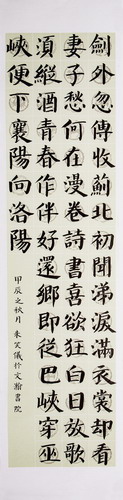 劍外忽傳收薊北初聞涕淚滿衣裳却看
妻子愁何在漫卷詩書喜欲狂白日放歌
須縱酒青春作伴好還鄉即從巴峽穿巫
峽便下襄陽向洛陽
甲辰之秋月朱笑儀於文翰書院